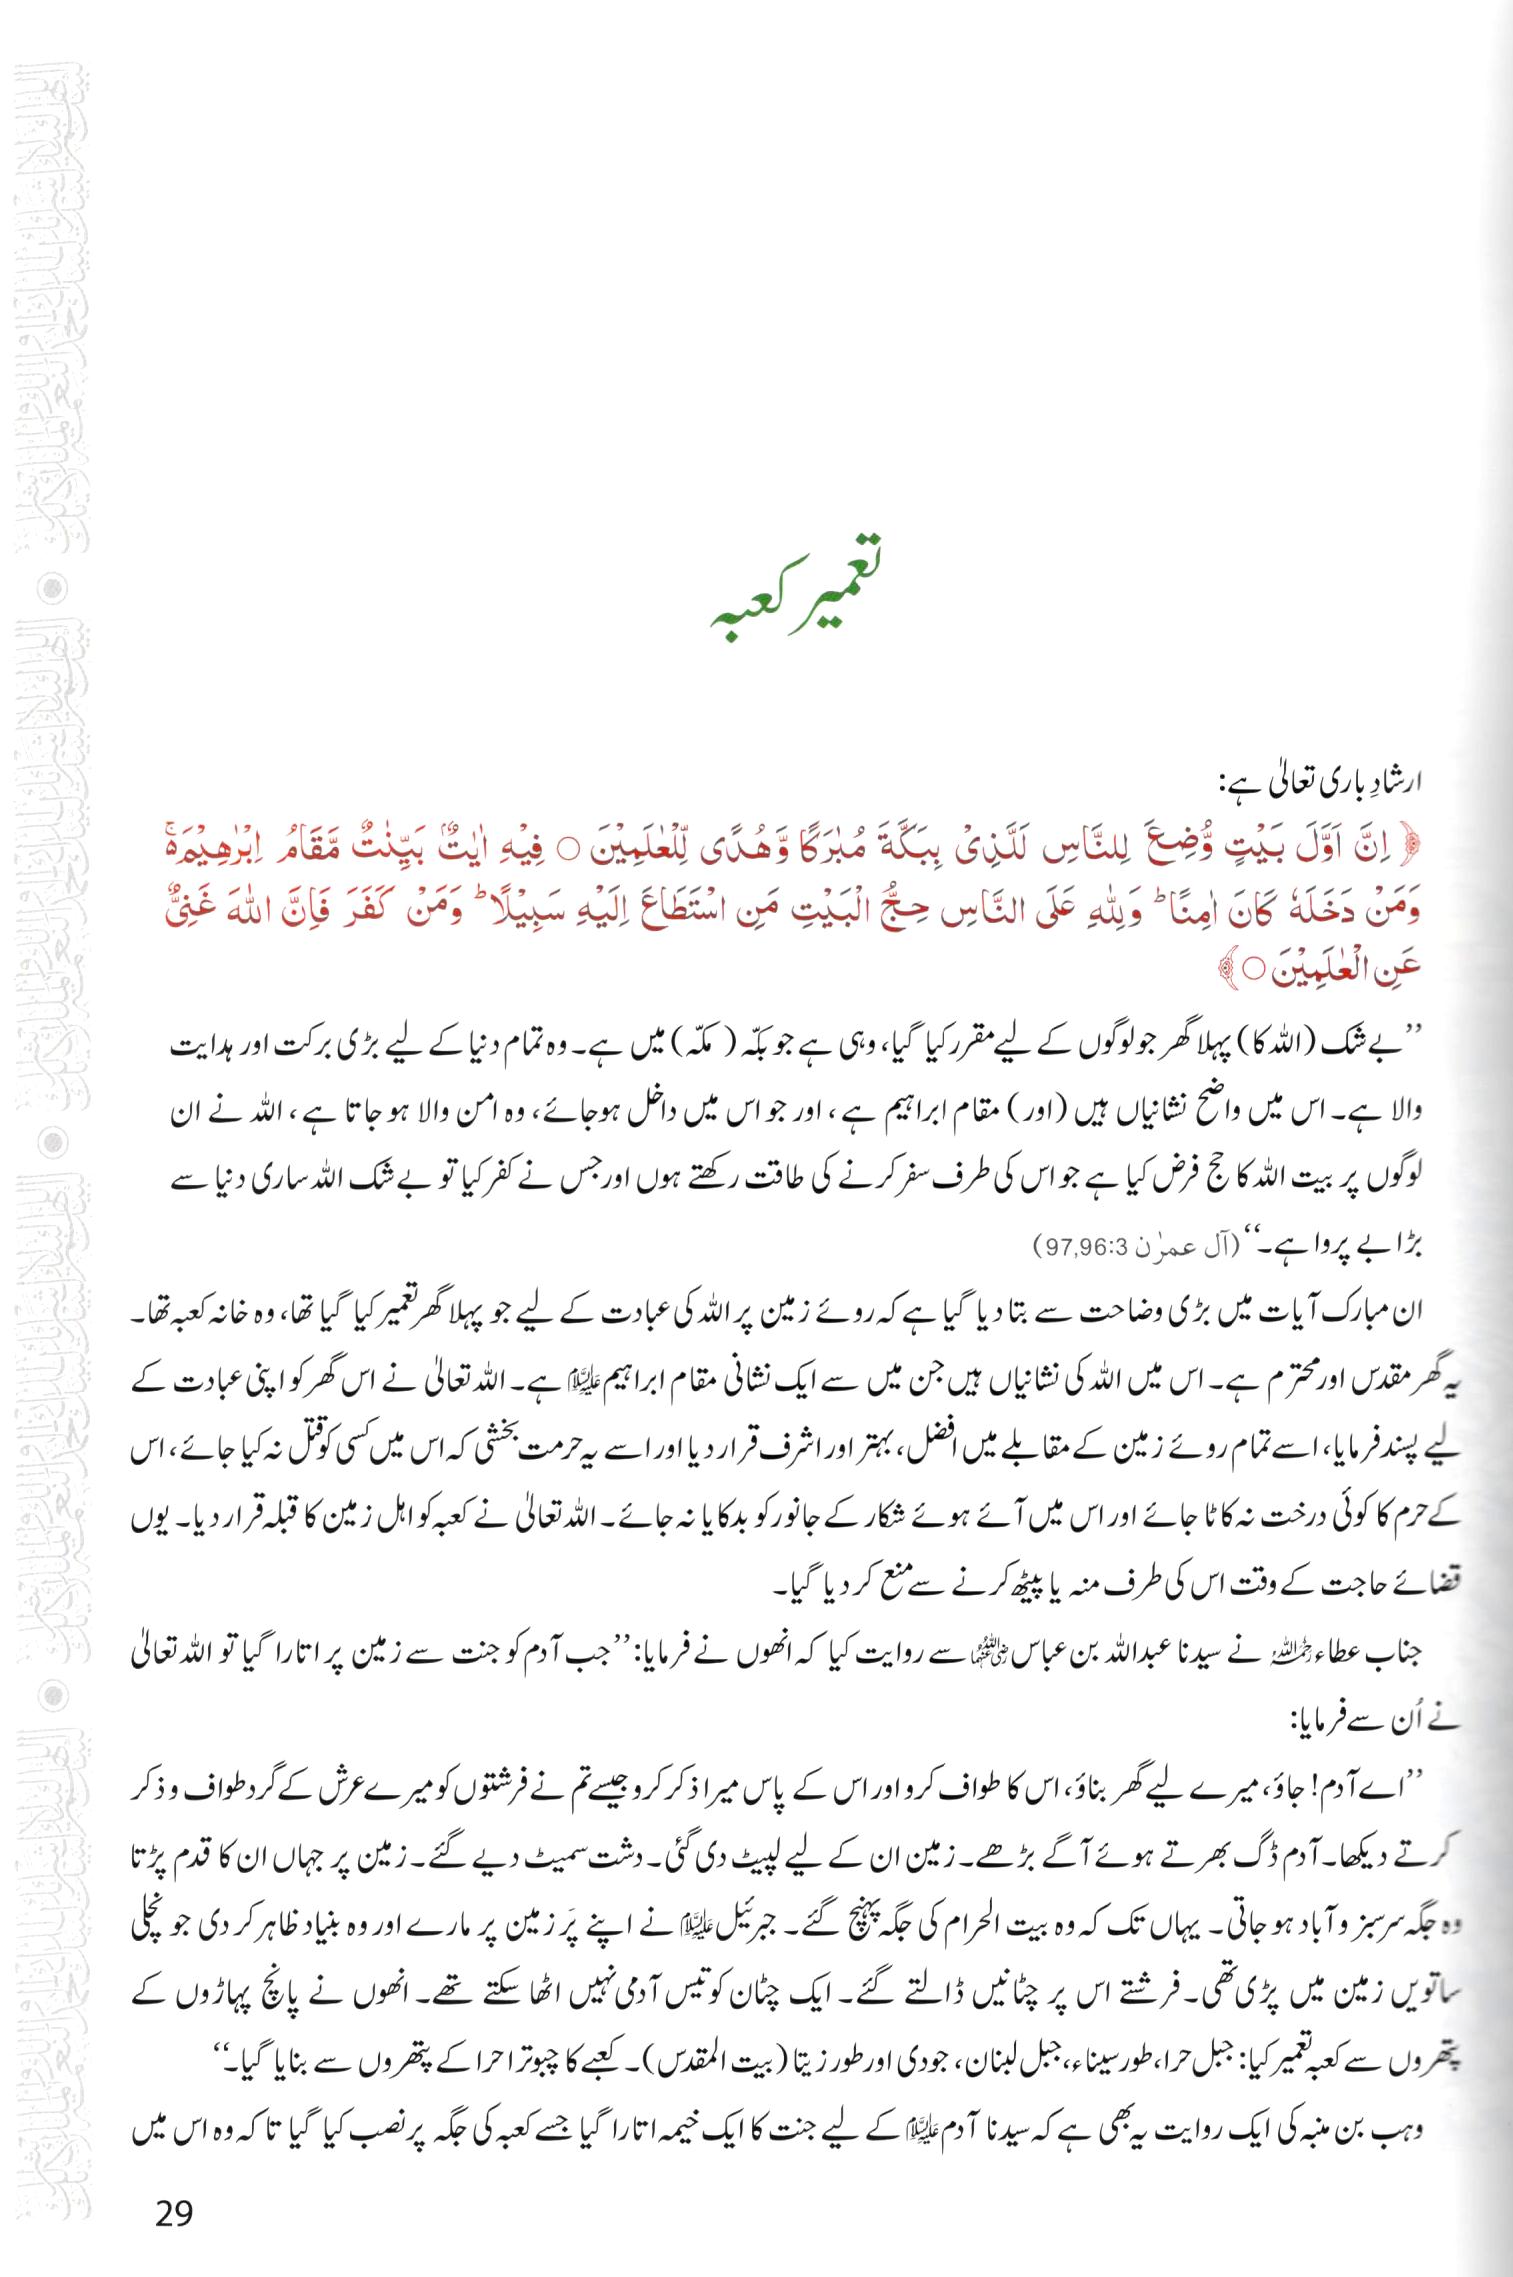 تعمیر کعبہ
ارشادِ باری تعالیٰ ہے:
﴿ اِنَّ اَوَّلَ بَيْتٍ وُّضِعَ لِلنَّاسِ لَلَّذِيْ بِبَكَّةَ مُبٰرَكًا وَّهُدًى لِّلْعٰلَمِيْنَ ○ فِيْهِ اٰيٰتٌۢ بَيِّنٰتٌ مَّقَامُ اِبْرٰهِيْمَ ەۚ
وَمَنْ دَخَلَهٗ كَانَ اٰمِنًا ؕ وَلِلّٰهِ عَلَى النَّاسِ حِجُّ الْبَيْتِ مَنِ اسْتَطَاعَ اِلَيْهِ سَبِيْلًا ؕ وَمَنْ كَفَرَ فَاِنَّ اللّٰهَ غَنِيٌّ
عَنِ الْعٰلَمِيْنَ ○ ﴾
’’بے شک (اللہ کا) پہلا گھر جو لوگوں کے لیے مقرر کیا گیا، وہی ہے جو بکّہ (مکّہ) میں ہے۔ وہ تمام دنیا کے لیے بڑی برکت اور ہدایت
والا ہے۔ اس میں واضح نشانیاں ہیں (اور) مقام ابراہیم ہے، اور جو اس میں داخل ہوجائے، وہ امن والا ہو جاتا ہے، اللہ نے ان
لوگوں پر بیت اللہ کا حج فرض کیا ہے جو اس کی طرف سفر کرنے کی طاقت رکھتے ہوں اور جس نے کفر کیا تو بے شک اللہ ساری دنیا سے
بڑا بے پروا ہے۔‘‘ (آل عمرٰن 97,96:3)
ان مبارک آیات میں بڑی وضاحت سے بتا دیا گیا ہے کہ روئے زمین پر اللہ کی عبادت کے لیے جو پہلا گھر تعمیر کیا گیا تھا، وہ خانہ کعبہ تھا۔
یہ گھر مقدس اور محترم ہے۔ اس میں اللہ کی نشانیاں ہیں جن میں سے ایک نشانی مقام ابراہیم علیہ السلام ہے۔ اللہ تعالیٰ نے اس گھر کو اپنی عبادت کے
لیے پسند فرمایا، اسے تمام روئے زمین کے مقابلے میں افضل، بہتر اور اشرف قرار دیا اور اسے یہ حرمت بخشی کہ اس میں کسی کو قتل نہ کیا جائے، اس
کے حرم کا کوئی درخت نہ کاٹا جائے اور اس میں آئے ہوئے شکار کے جانور کو بدکایا نہ جائے۔ اللہ تعالیٰ نے کعبہ کو اہل زمین کا قبلہ قرار دیا۔ یوں
قضائے حاجت کے وقت اس کی طرف منہ یا پیٹھ کرنے سے منع کر دیا گیا۔
جناب عطاء رحمہ اللہ نے سیدنا عبداللہ بن عباس رضی اللہ عنہما سے روایت کیا کہ انھوں نے فرمایا: ’’جب آدم کو جنت سے زمین پر اتارا گیا تو اللہ تعالیٰ
نے اُن سے فرمایا:
’’اے آدم! جاؤ، میرے لیے گھر بناؤ، اس کا طواف کرو اور اس کے پاس میرا ذکر کرو جیسے تم نے فرشتوں کو میرے عرش کے گرد طواف و ذکر
کرتے دیکھا۔ آدم ڈگ بھرتے ہوئے آگے بڑھے۔ زمین ان کے لیے لپیٹ دی گئی۔ دشت سمیٹ دیے گئے۔ زمین پر جہاں ان کا قدم پڑتا
وہ جگہ سرسبز و آباد ہو جاتی۔ یہاں تک کہ وہ بیت الحرام کی جگہ پہنچ گئے۔ جبرئیل علیہ السلام نے اپنے پَر زمین پر مارے اور وہ بنیاد ظاہر کر دی جو نچلی
ساتویں زمین میں پڑی تھی۔ فرشتے اس پر چٹانیں ڈالتے گئے۔ ایک چٹان کو تیس آدمی نہیں اٹھا سکتے تھے۔ انھوں نے پانچ پہاڑوں کے
پتھروں سے کعبہ تعمیر کیا: جبل حرا، طور سیناء، جبل لبنان، جودی اور طور زیتا (بیت المقدس)۔ کعبے کا چبوترا حرا کے پتھروں سے بنایا گیا۔‘‘
وہب بن منبہ کی ایک روایت یہ بھی ہے کہ سیدنا آدم علیہ السلام کے لیے جنت کا ایک خیمہ اتارا گیا جسے کعبہ کی جگہ پر نصب کیا گیا تاکہ وہ اس میں
29